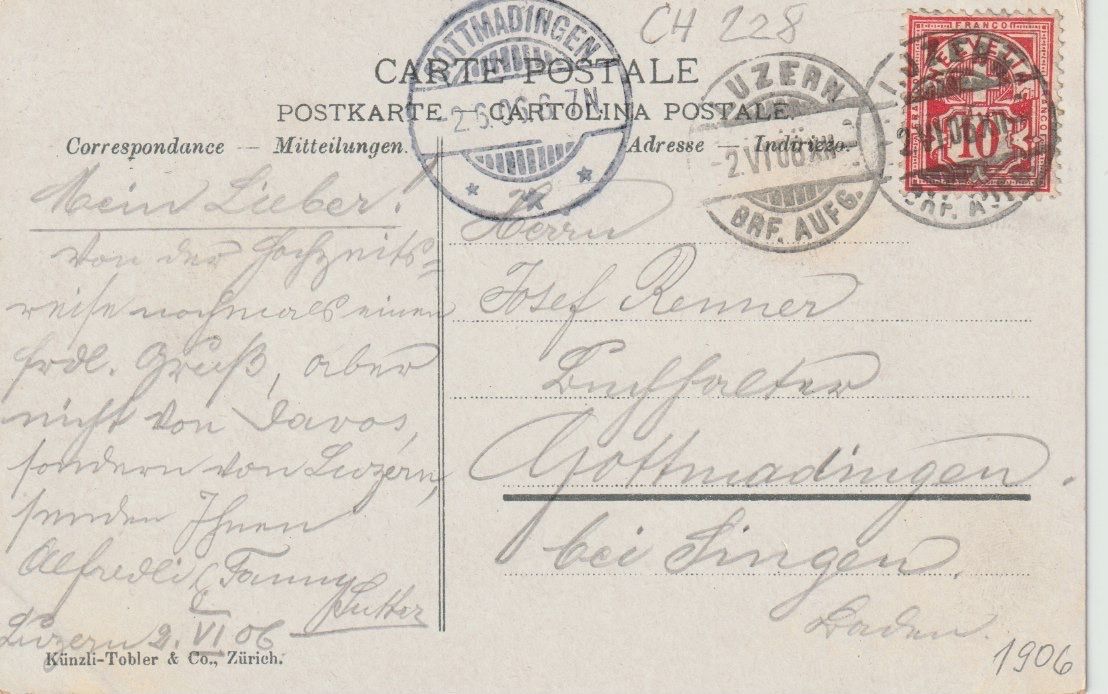 CH 228
CARTE POSTALE
POSTKARTE — CARTOLINA POSTALE.
Correspondance — Mitteilungen.
Adresse — Indirizzo.
GOTTMADINGEN
2.6.06.6-7N.
LUZERN
-2.VI.06.XII-
BRF. AUFG.
LUZERN
-2.VI.06.XII-
BRF. AUFG.
FRANCO
HELVETIA
10
Mein Lieber!
Von der Hochzeits=
reise nochmals einen
frdl. Gruß, aber
nicht von Davos,
sondern von Luzern,
senden Ihnen
Alfredli & Fanny
Sutter
Luzern 2. VI 06
Herrn
Josef Renner
Buchhalter
Gottmadingen.
bei Singen.
Baden.
Künzli-Tobler & Co., Zürich.
1906